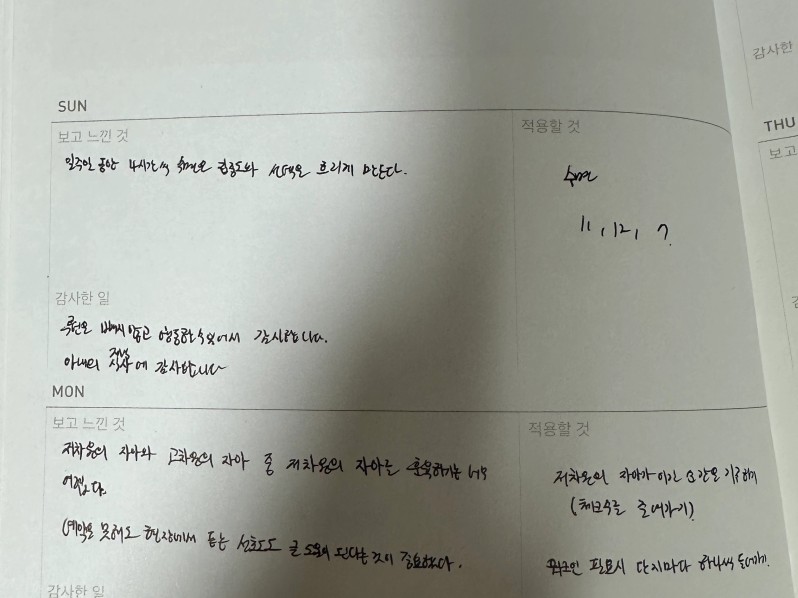 SUN
보고 느낀 것
적용할 것
일주일 동안 4시간씩 수면은 집중도와 선택을 흐리게 만든다.
수면
11, 12, 7
감사한 일
빼지 않고 행동할 수 있어서 감사합니다.
아내의 저녁 식사에 감사합니다
MON
보고 느낀 것
적용할 것
저차원의 자아와 고차원의 자아 중 저차원의 자아를 굴복하기는 너무
어렵다.
저차원의 자아가 이긴 순간을 기록하기
(체크수를 줄여가기)
(계약을 못해도 현장에서 듣는 선호도도 큰 도움이 된다는 것이 중요하다.
필요시 단지마다 하나씩
감사한 일
THU
보고
감사한